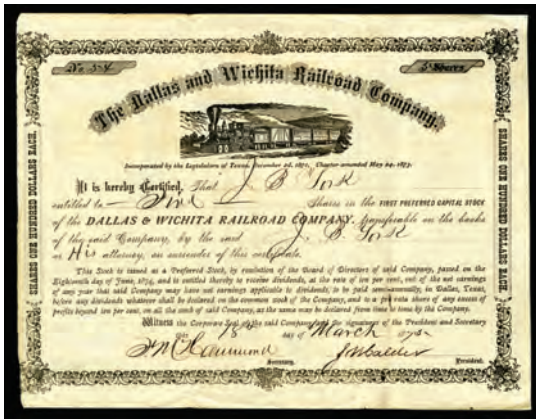 No 54
5 Shares
The Dallas and Wichita Railroad Company,
Incorporated by the Legislature of Texas, December 2d, 1871, Chapter amended May 24, 1873.
It is hereby Certified, That J. B. York
entitled to Five Shares in the FIRST PREFERRED CAPITAL STOCK
of the DALLAS & WICHITA RAILROAD COMPANY, transferable on the books
of the said Company, by the said J. B. York
or His attorney, on surrender of this certificate.
This Stock is issued as a Preferred Stock, by resolution of the Board of Directors of said Company, passed on the
Eighteenth day of June, 1874, and is entitled thereby to receive dividends, at the rate of ten per cent, out of the net earnings
of any year that said Company may have net earnings applicable to dividends, to be paid semi-annually, in Dallas, Texas,
before any dividends whatever shall be declared on the common stock of the Company, and to a pro rata share of any excess of
profits beyond ten per cent, on all the stock of said Company, as the same may be declared from time to time by the Company.
Witness the Corporate Seal of the said Company and the signatures of the President and Secretary
this 18 day of March 1875
Secretary.
President.
SHARES ONE HUNDRED DOLLARS EACH.
SHARES ONE HUNDRED DOLLARS EACH.